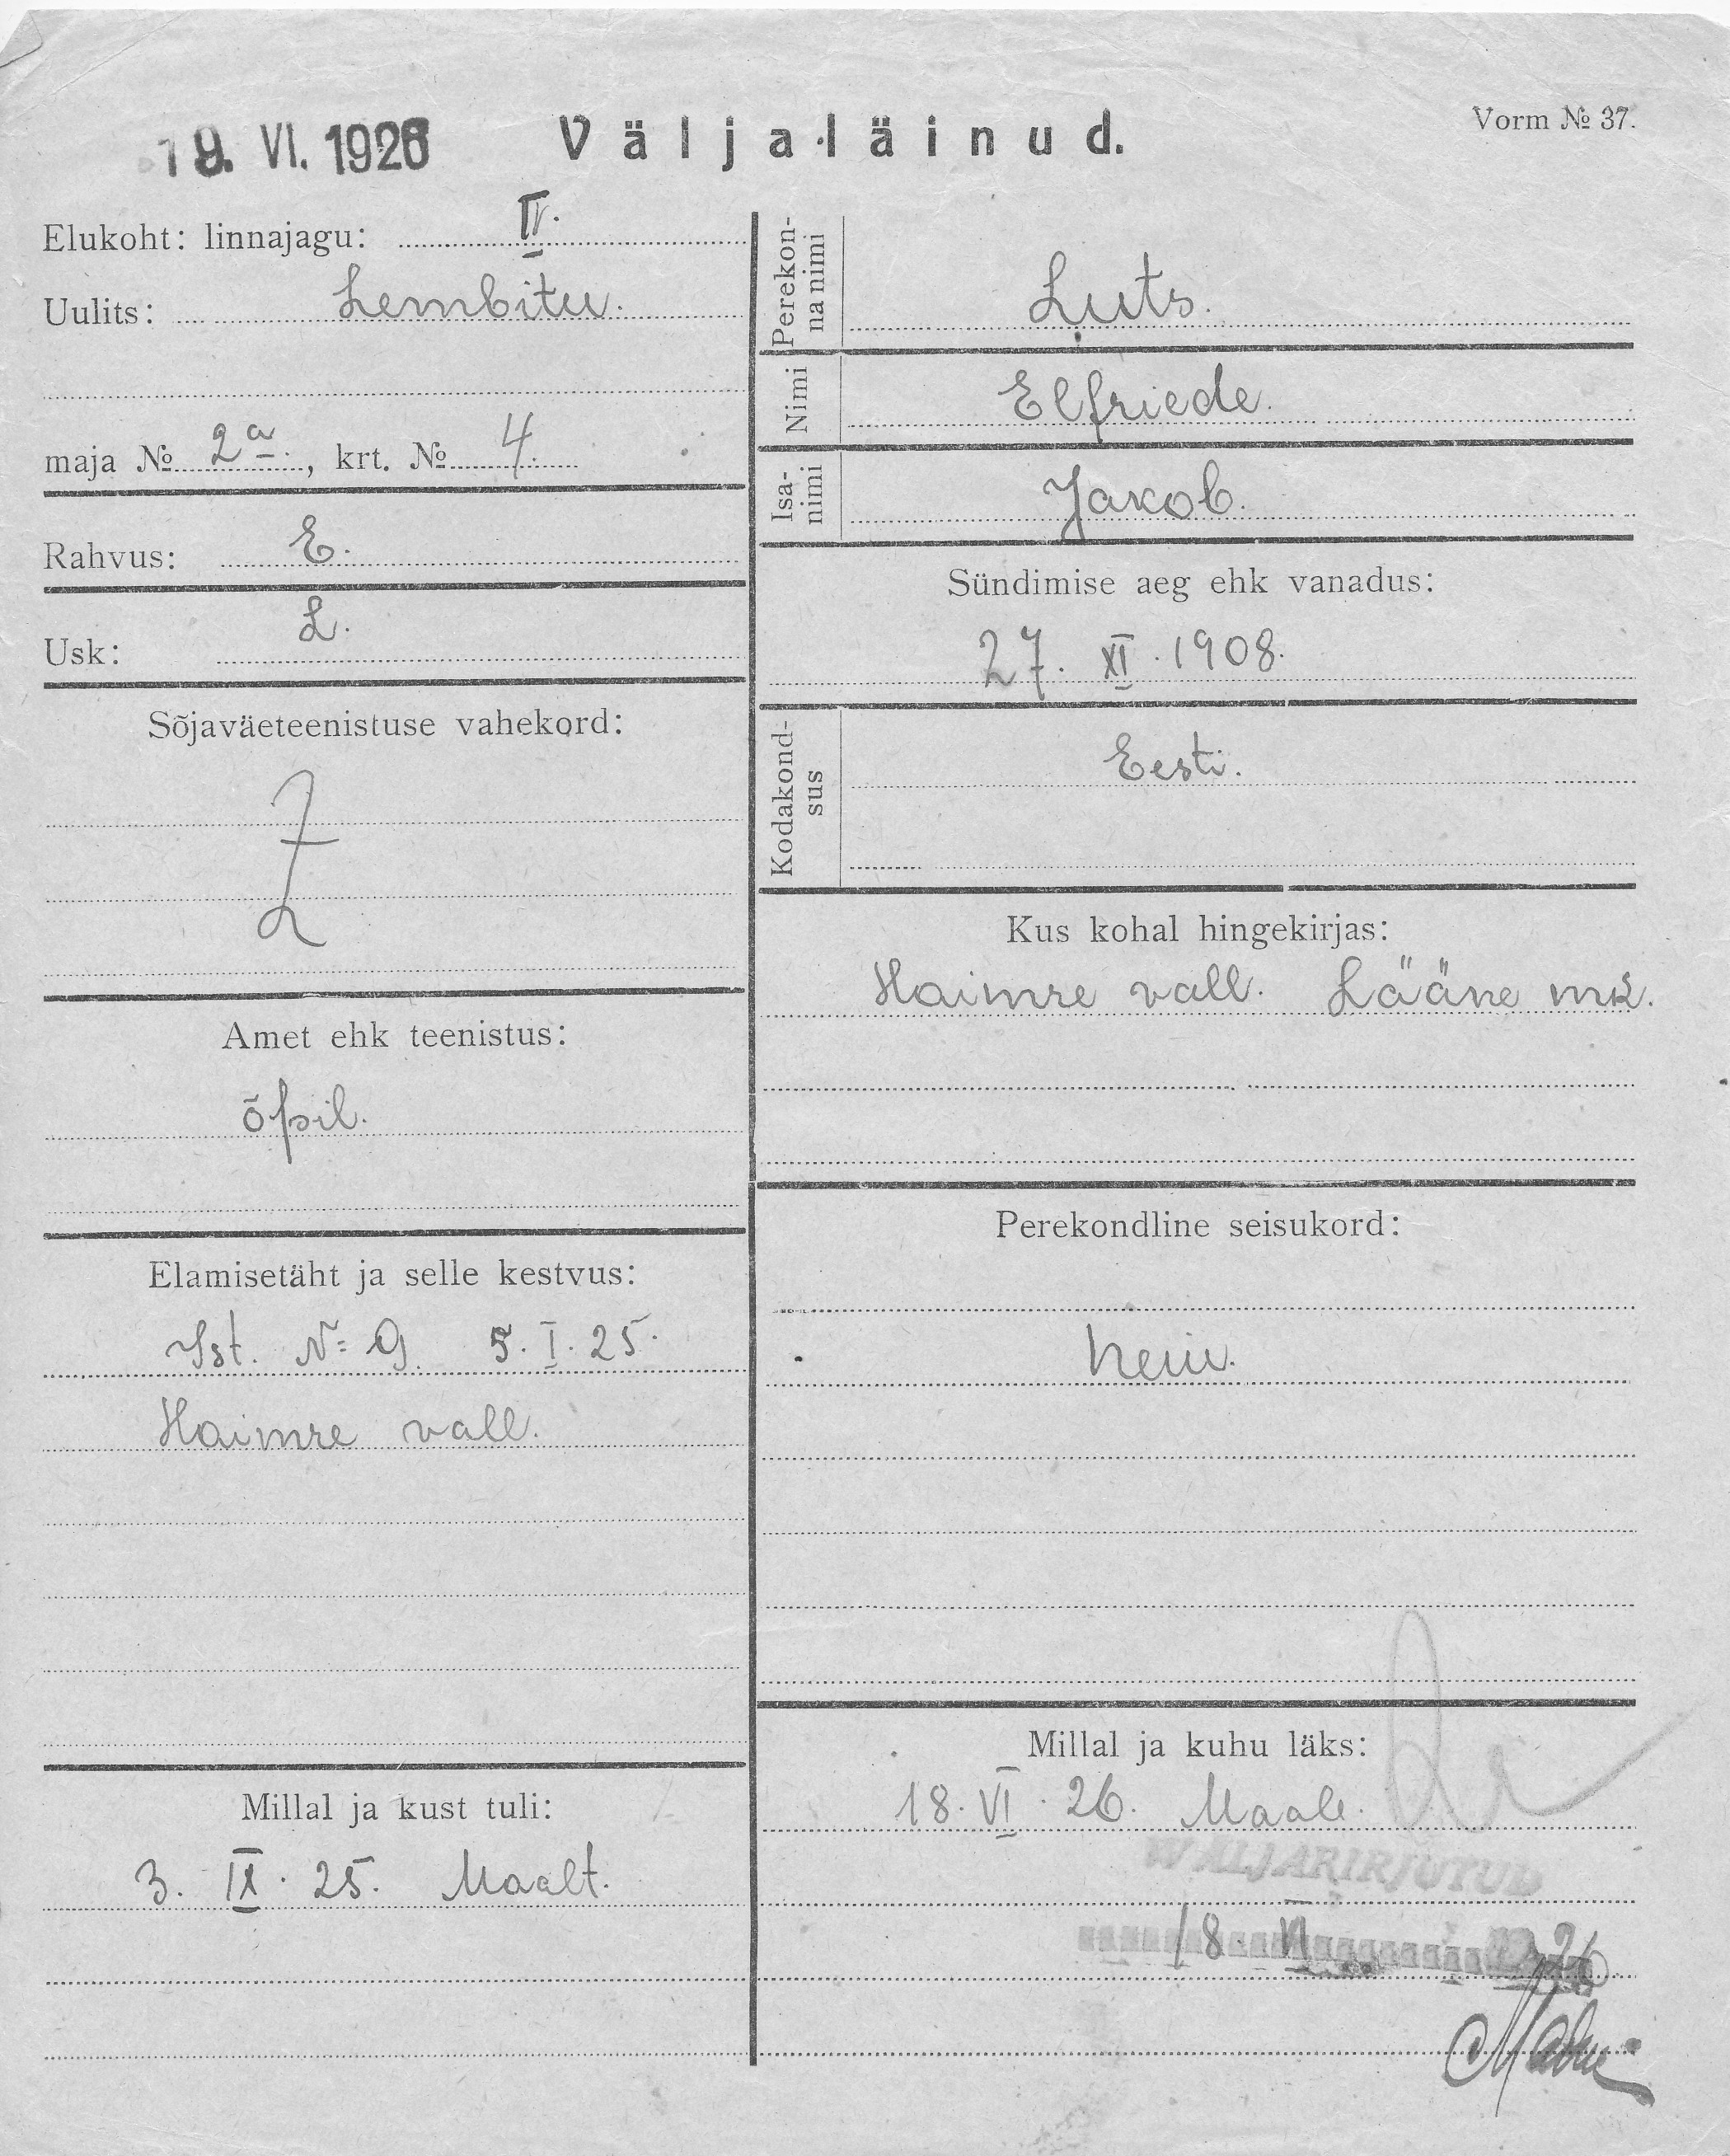 19. VI. 1926
Väljaläinud.
Vorm № 37.
Elukoht: linnajagu: IV.
Uulits: Lembitu.
maja № 2a., krt. № 4.
Rahvus: E.
Usk: L.
Sõjaväeteenistuse vahekord:
Amet ehk teenistus:
õpil.
Elamisetäht ja selle kestvus:
Ist. №= 9. 5. I. 25.
Haimre vall.
Millal ja kust tuli:
3. IX. 25. Maalt.
Perekonna nimi
Luts.
Nimi
Elfriede.
Isanimi
Jakob.
Sündimise aeg ehk vanadus:
27. XI. 1908.
Kodakondsus
Eesti.
Kus kohal hingekirjas:
Haimre vall. Lääne mk.
Perekondline seisukord:
neiu.
Millal ja kuhu läks:
18. VI. 26. Maale.
WÄLJAKIRJUTUD
18. VI 1926